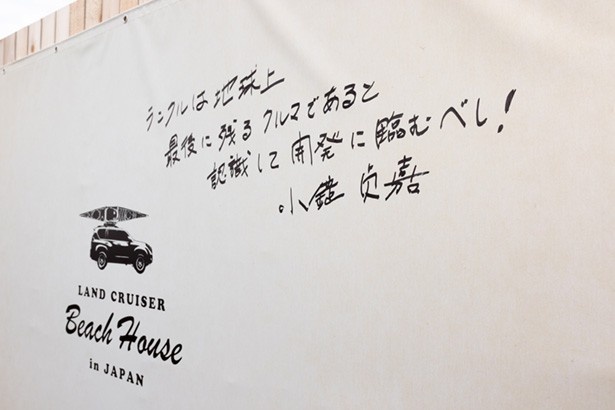 ランクルは地球上
最後に残るクルマであると
認識して開発に臨むべし!
小鑓 貞嘉
LAND CRUISER
Beach House
in JAPAN